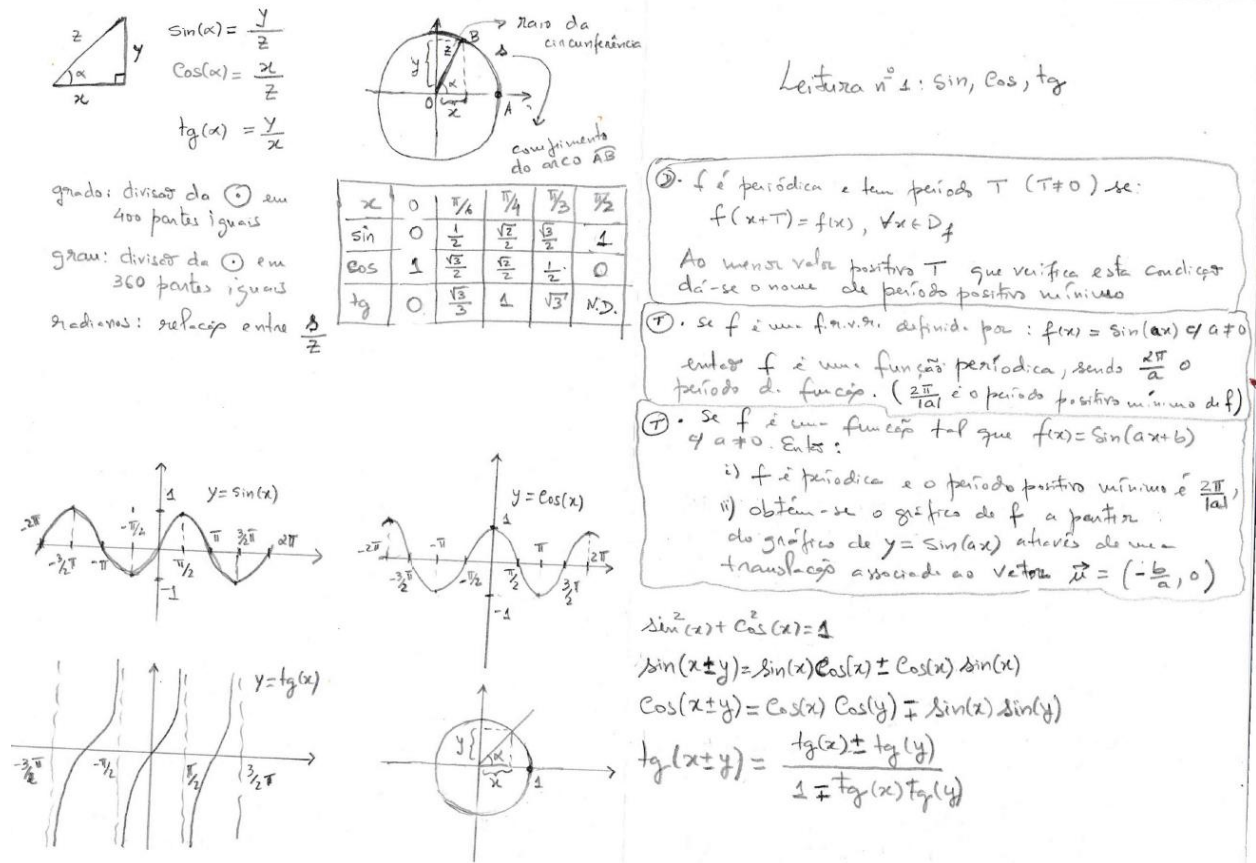 z
y
α
x
sin(α) = y/z
Cos(α) = x/z
tg(α) = y/x
raio da
circunferência
B
z
s
y
α
O
x
A
comprimento
do arco AB
grado: divisão da ⊙ em
400 partes iguais
grau: divisão da ⊙ em
360 partes iguais
radianos: relação entre s/z
x 0 π/6 π/4 π/3 π/2
sin 0 1/2 √2/2 √3/2 1
cos 1 √3/2 √2/2 1/2 0
tg 0 √3/3 1 √3 N.D.
1 y=sin(x)
-2π -3/2π -π -π/2 π/2 π 3/2π 2π
-1
y=Cos(x)
1
-2π -3/2π -π -π/2 π/2 π 3/2π 2π
-1
y=tg(x)
-3/2π -π/2 π/2 3/2π
y
α
x
1
Leitura nº 1: Sin, Cos, tg
D. f é periódica e tem período T (T≠0) se:
f(x+T)=f(x), ∀x∈D_f
Ao menor valor positivo T que verifica esta condição
dá-se o nome de período positivo mínimo
T. Se f é uma f.r.v.r. definida por: f(x) = Sin(ax) c/ a≠0
então f é uma função períodica, sendo 2π/a o
período da função. (2π/|a| é o período positivo mínimo de f)
T. Se f é uma função tal que f(x)=Sin(ax+b)
c/ a≠0. Então:
i) f é periódica e o período positivo mínimo é 2π/|a|,
ii) obtém-se o gráfico de f a partir
do gráfico de y=Sin(ax) através de uma
translação associada ao vetor u⃗ = (-b/a, 0)
sin²(x)+Cos²(x)=1
sin(x±y)=Sin(x)Cos(x)±Cos(x).sin(x)
Cos(x±y)=Cos(x) Cos(y) ∓ Sin(x) Sin(y)
tg(x±y) = (tg(x)±tg(y))/(1∓tg(x)tg(y))